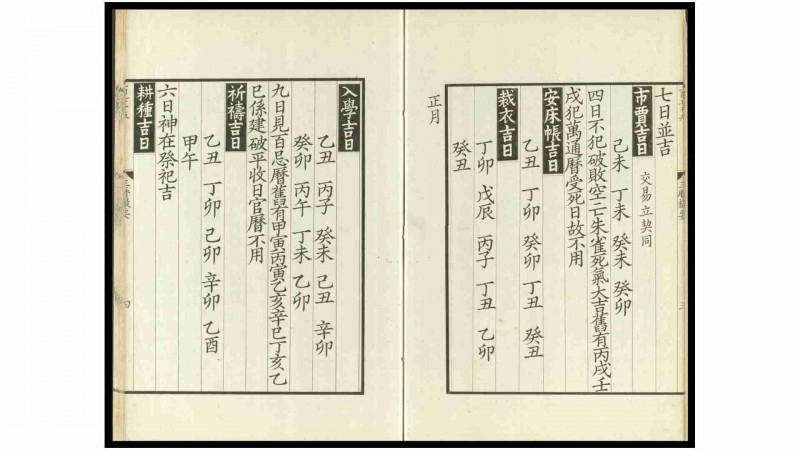 七日並吉
市賈吉日 交易立契同
己未 丁未 癸未 癸卯
四日不犯破敗空亡朱雀死氣大吉舊有丙戌壬
戌犯萬通曆受死日故不用
安床帳吉日
乙丑 丁卯 癸卯 丁丑 癸丑
裁衣吉日
丁卯 戊辰 丙子 丁丑 乙卯
癸丑
正月
入學吉日
乙丑 丙子 癸未 己丑 辛卯
癸卯 丙午 丁未 乙卯
九日見百忌曆舊有甲寅丙寅乙亥辛巳丁亥乙
巳係建破平收日官曆不用
祈禱吉日
乙丑 丁卯 己卯 辛卯 乙酉
甲午
六日神在祭祀吉
耕種吉日
三曆撮要
四